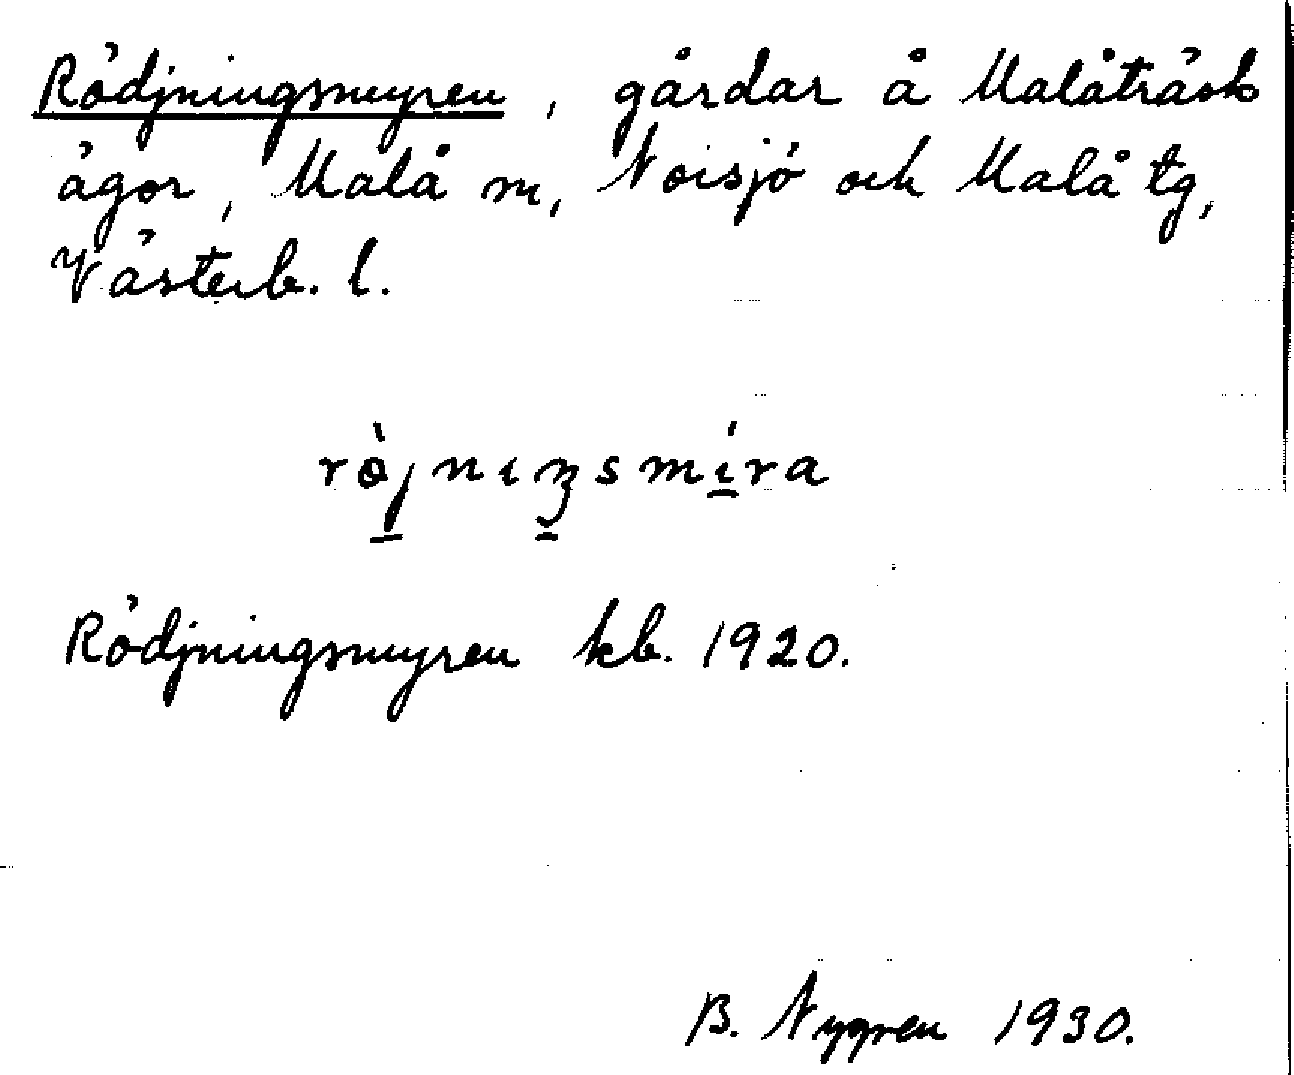 Rödjningsmyren, gårdar å Malåträsk
ägor, Malå sn, Norsjö och Malå tg,
Västerb. l.
Rödjningsmyren kb. 1920.
B. Nygren 1930.